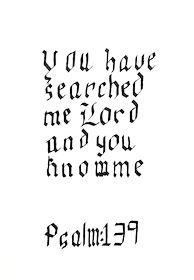 You have
searched
me Lord
and you
know me
Psalm:139